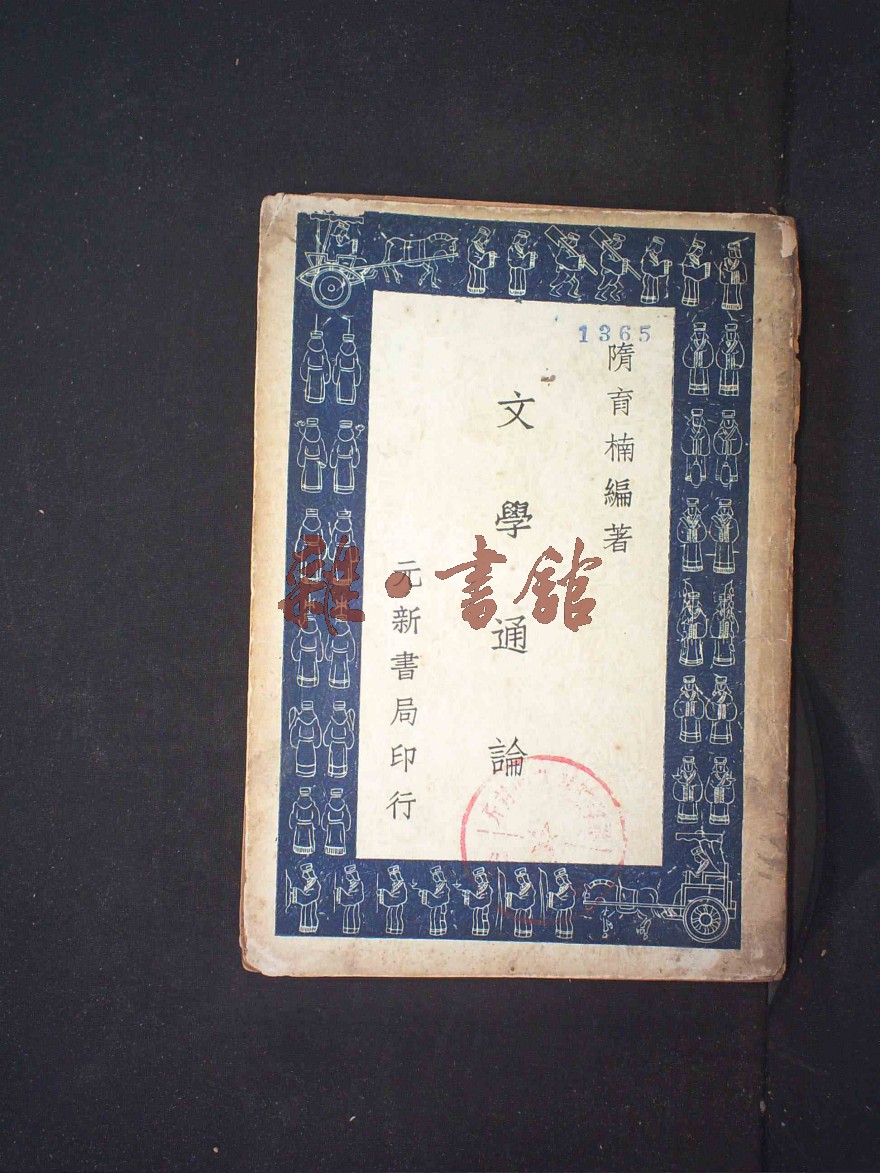 1365
隋育楠編著
文學通論
元新書局印行
雜·書館